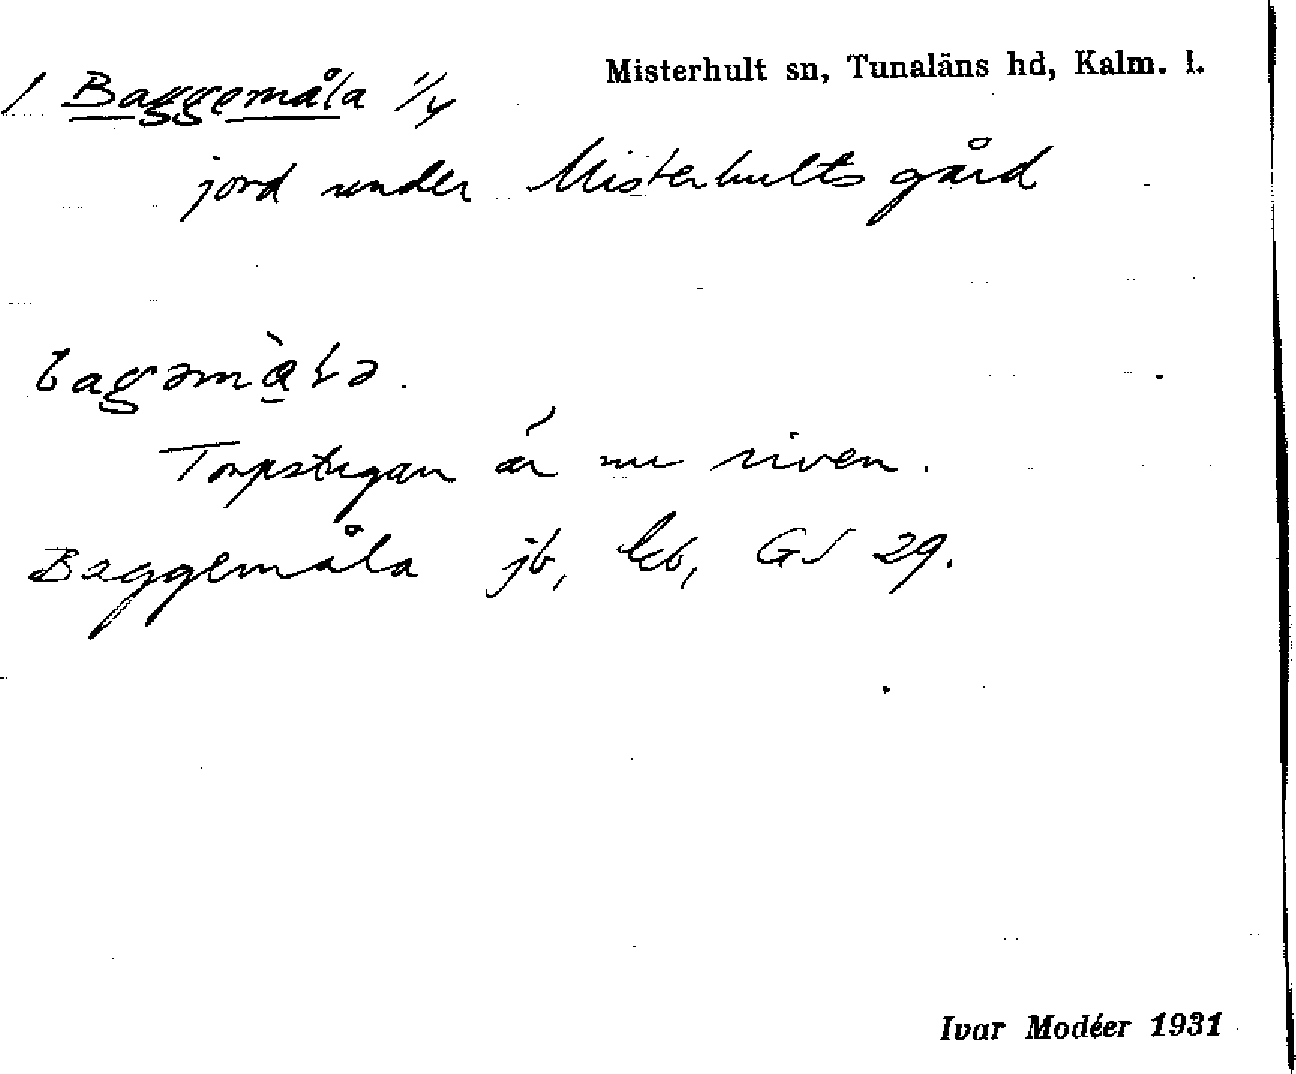 Misterhult sn, Tunaläns hd, Kalm. l.
/ Baggemåla 1/4
jord under Misterhults gård
bagəmà̱ɫə.
Torpstugan är nu riven.
Baggemåla jb, kb, GS 29.
Ivar Modéer 1931